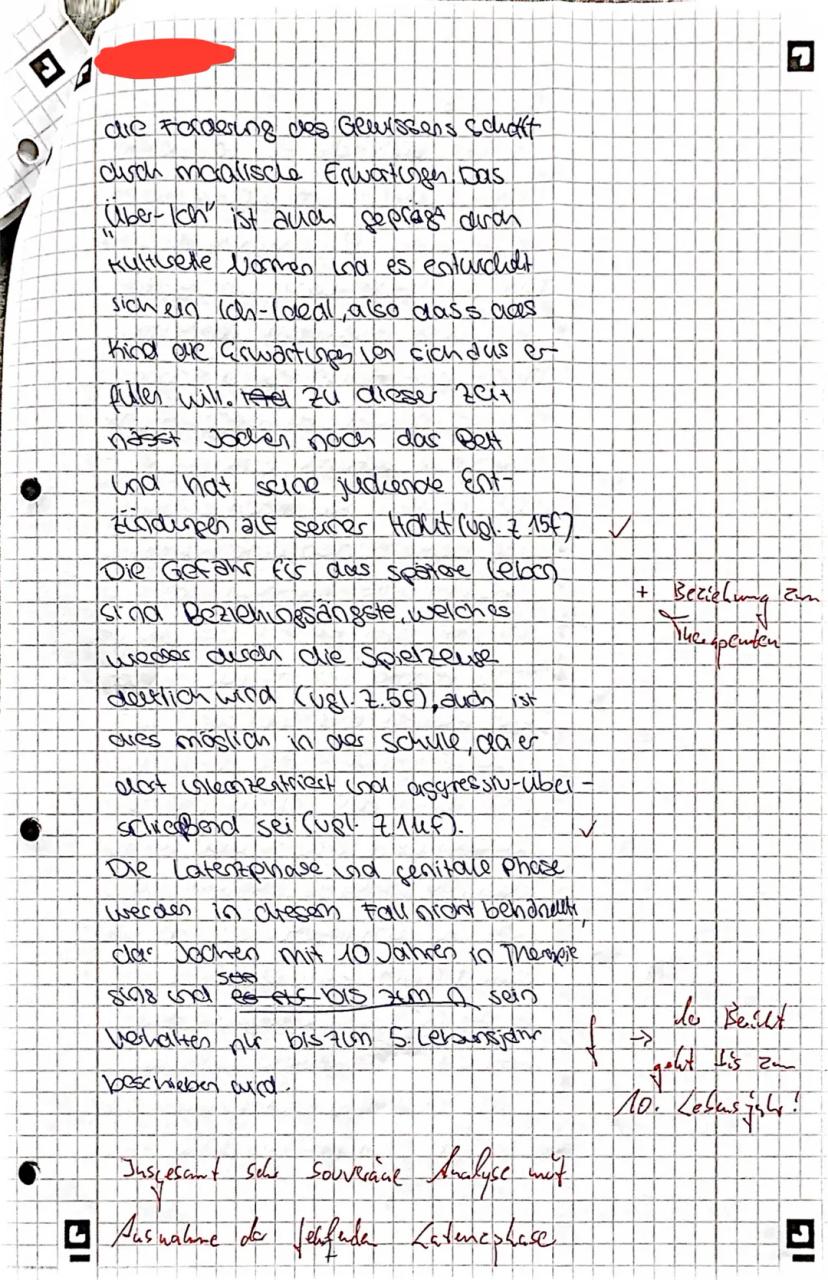 die Forderung des Gewissens schafft
durch moralische Erwartungen. Das
„Über-Ich" ist auch geprägt durch
kulturelle Normen und es entwickelt
sich ein Ich-Ideal, also dass das
Kind die Erwartungen von sich aus er-
füllen will. Zu dieser Zeit
nässt Jochen noch das Bett
und hat seine juckende Ent-
zündungen auf seiner Haut (vgl. Z.15f). ✓
Die Gefahr für das spätere Leben
+ Beziehung zum
sind Beziehungsängste, welches
Therapeuten
weder durch die Spielzeuge
deutlich wird (vgl. Z.5f), auch ist
dies möglich in der Schule, da er
dort unkonzentriert und aggressiv-über-
schießend sei (vgl. Z.14f). ✓
Die Latenzphase und genitale Phase
werden in diesem Fall nicht behandelt,
da Jochen mit 10 Jahren in Therapie
und es bis zum sein
Verhalten nur bis zum 5. Lebensjahr
f → der Bericht
geht bis zum
beschrieben wird.
10. Lebensjahr!
Insgesamt sehr souveräne Analyse mit
Ausnahme der fehlenden Latenzphase